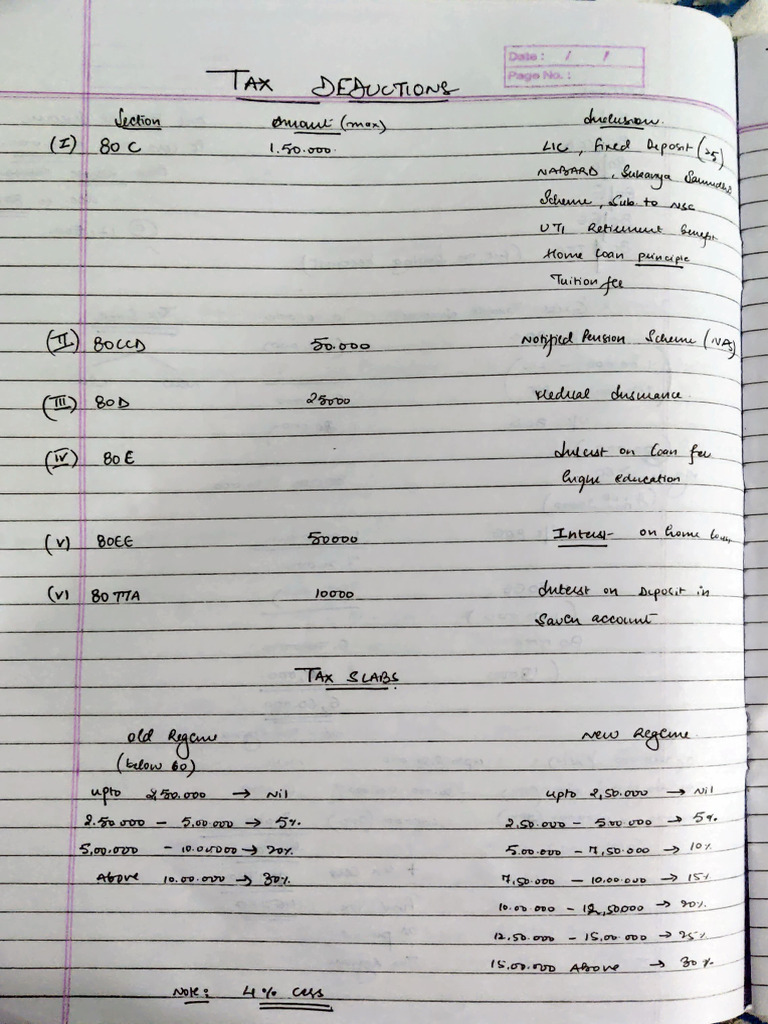 Date : / /
Page No. :
TAX DEDUCTIONS
Section Amount (max) Inclusion
(I) 80 C 1.50.000. LIC, Fixed Deposit (
NABARD, Sukanya
Scheme, Sub to NSC
UTI Retirement Benefit
Home Loan principle
Tuition fee
(II) 80CCD 50.000 Notified Pension Scheme (
(III) 80D 25000 Medical Insurance.
(IV) 80E Interest on Loan for
higher education
(V) 80EE 50000 Interest on home
(VI 80 TTA 10000 Interest on Deposit in
account
TAX SLABS
old Regime New Regime
(below 60)
upto 2,50.000 → Nil upto 2,50.000 → Nil
2.50.000 - 5,00.000 → 5% 2,50.000 - 5.00.000 → 5%
5,00.000 - 10.00000 → 20% 5.00.000 - 7,50.000 → 10%
Above 10.00.000 → 30% 7,50.000 - 10.00.000 → 15%
10.00.000 - 12,50000 → 20%
12,50.000 - 15,00.000 → 25%
15,00.000 Above → 30%
Note: 4% cess